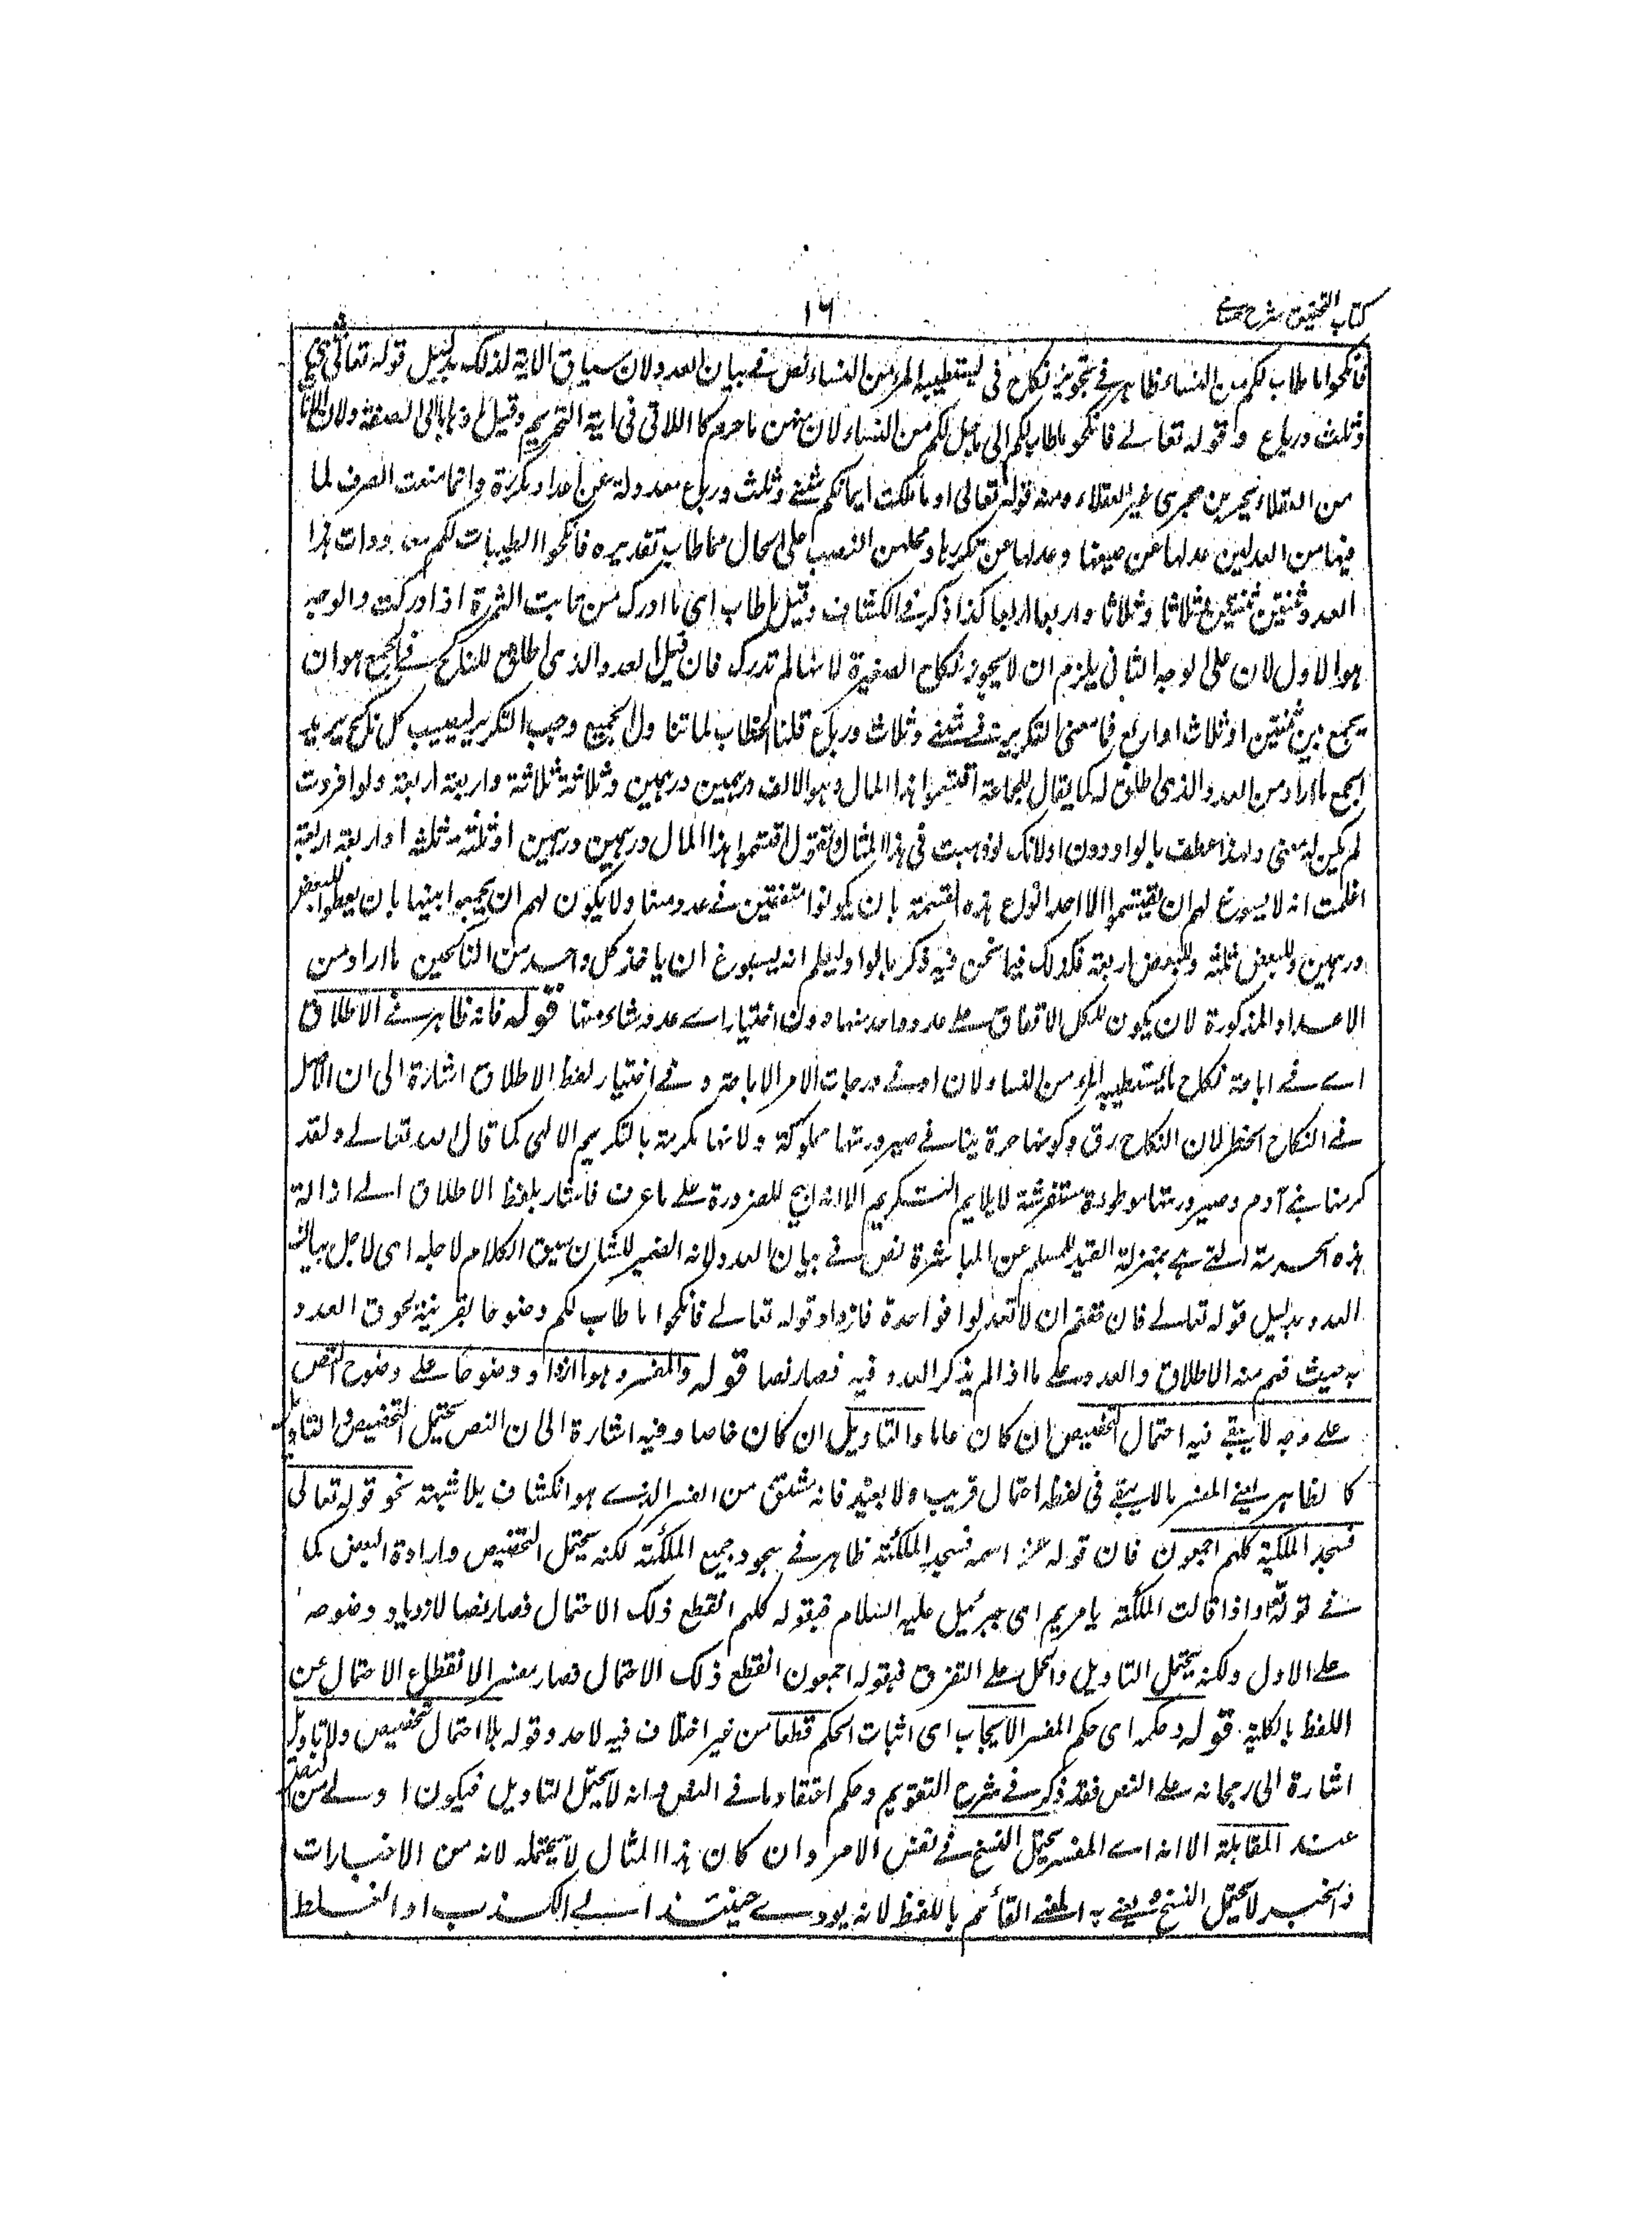 كتاب التحقيق شرح حسامي
١٦
فانكحوا ما طاب لكم من النساء ظاهر في تجويز نكاح ما يستطيبه المرء من النساء نص في بيان العدد لان سياق الاية لذلك بدليل قوله تعالى مثنى
وثلث ورباع وقوله تعالى فانكحوا ما طاب لكم اي ما حل لكم من النساء لان منهن ما حرم كا اللاتي في اية التحريم وقيل ما ذهابا الى الصفة ولان الاناث
من العقلاء يجرين مجرى غير العقلاء ومنه قوله تعالى او ما ملكت ايمانكم مثنى وثلث ورباع معدولة عن اعداد مكررة وانما منعت الصرف لما
فيها من العدلين عدلها عن صيغها وعدلها عن تكررها ومحلهن النصب على الحال مما طاب تقديره فانكحوا الطيبات لكم معدودات هذا
العدد ثنتين ثنتين وثلاثا وثلاثا واربعا اربعا كذا ذكر في الكشاف وقيل ما طاب اي ما ادرك من طابت الثمرة اذا ادركت والوجه
هو الاول لان على الوجه الثاني يلزم ان لا يجوز نكاح الصغيرة لانها لم تدرك فان قيل العدد الذي اطلق للناكح في الجمع هو ان
يجمع بين ثنتين او ثلاث او اربع فما معنى التكرير في مثنى وثلاث ورباع قلنا الخطاب لما تناول الجميع وجب التكرير ليصيب كل ناكح يريد
الجمع ما اراد من العدد الذي اطلق له كما يقال للجماعة اقتسموا هذا المال وهو الالف درهمين درهمين وثلاثة ثلاثة واربعة اربعة ولو افردت
لم يكن له معنى ولهذا عطف بالواو دون او لانك لو ذهبت في هذا المثال وتقول اقتسموا هذا المال درهمين درهمين او ثلثة ثلثة او اربعة اربعة
اعلمت انه لا يسوغ لهم ان يقتسموا الا احد انواع هذه القسمة بان يكونوا متفقين في عدد منها ولا يكون لهم ان يجمعوا بينها بان يعطوا البعض
درهمين وللبعض ثلثة وللبعض اربعة فكذلك فيما نحن فيه ذكر بالواو ليعلم انه يسوغ ان ياخذ كل واحد من الناكحين ما اراد من
الاعداد المذكورة لان يكون للكل الاتفاق على عدد واحد منها دون اختيار اي عدد شاء منها قوله فانه ظاهر في الاطلاق
اي في اباحة نكاح ما يستطيبه المرء من النساء لان ادنى درجات الامر الاباحة وفي اختيار لفظ الاطلاق اشارة الى ان الاصل
في النكاح الحظر لان النكاح رق وكونها حرة ينافي صيرورتها مملوكة ولانها مكرمة بالتكريم الالهي كما قال الله تعالى ولقد
كرمنا بني آدم وصيرورتها موطوءة مستفرشة لا يلايم التكريم الا انه ابيح للضرورة على ما عرف فاشار بلفظ الاطلاق الى ازالة
هذه الحرمة التي هي بمنزلة القيد للمسلم عن المباشرة نص في بيان العدد لانه الضمير للشان سيق الكلام لاجله اي لاجل بيان
العدد بدليل قوله تعالى فان خفتم ان لا تعدلوا فواحدة فازداد قوله تعالى فانكحوا ما طاب لكم وضوحا بقرينة لحوق العدد
به حيث فهم منه الاطلاق والعدد على ما اذا لم يذكر العدد فيه فصار نصا قوله والمفسر وهو ما ازداد وضوحا على وضوح النص
على وجه لا يبقى فيه احتمال التخصيص ان كان عاما والتاويل ان كان خاصا وفيه اشارة الى ان النص يحتمل التخصيص والتاويل
كا لظاهر يعني المفسر ما لا يبقى في لفظه احتمال قريب ولا بعيد فانه مشتق من الفسر الذي هو انكشاف بلا شبهة نحو قوله تعالى
فسجد الملئكة كلهم اجمعون فان قوله عز اسمه فسجد الملئكة ظاهر في سجود جميع الملئكة لكنه يحتمل التخصيص وارادة البعض كما
في قوله تعالى واذ قالت الملئكة يا مريم اي جبرئيل عليه السلام فبقوله كلهم انقطع ذلك الاحتمال فصار نصا لازدياد وضوحه
على الاول ولكنه يحتمل التاويل والحمل على التفرق فبقوله اجمعون انقطع ذلك الاحتمال فصار مفسرا لانقطاع الاحتمال عن
اللفظ بالكلية قوله وحكمه اي حكم المفسر الايجاب اي اثبات الحكم قطعا من غير اختلاف فيه لاحد وقوله بلا احتمال تخصيص ولا تاويل
اشارة الى رجحانه على النص فقد ذكر في شرح التقويم وحكم اعتقاد ما في النص وانه لا يحتمل التاويل فيكون اولى من النص
عند المقابلة الا انه اي المفسر يحتمل النسخ في نفس الامر وان كان هذا المثال لا يحتمله لانه من الاخبارات
والخبر لا يحتمل النسخ ويعني به المعنى القائم باللفظ لانه يؤدي حينئذ الى الكذب او الغلط